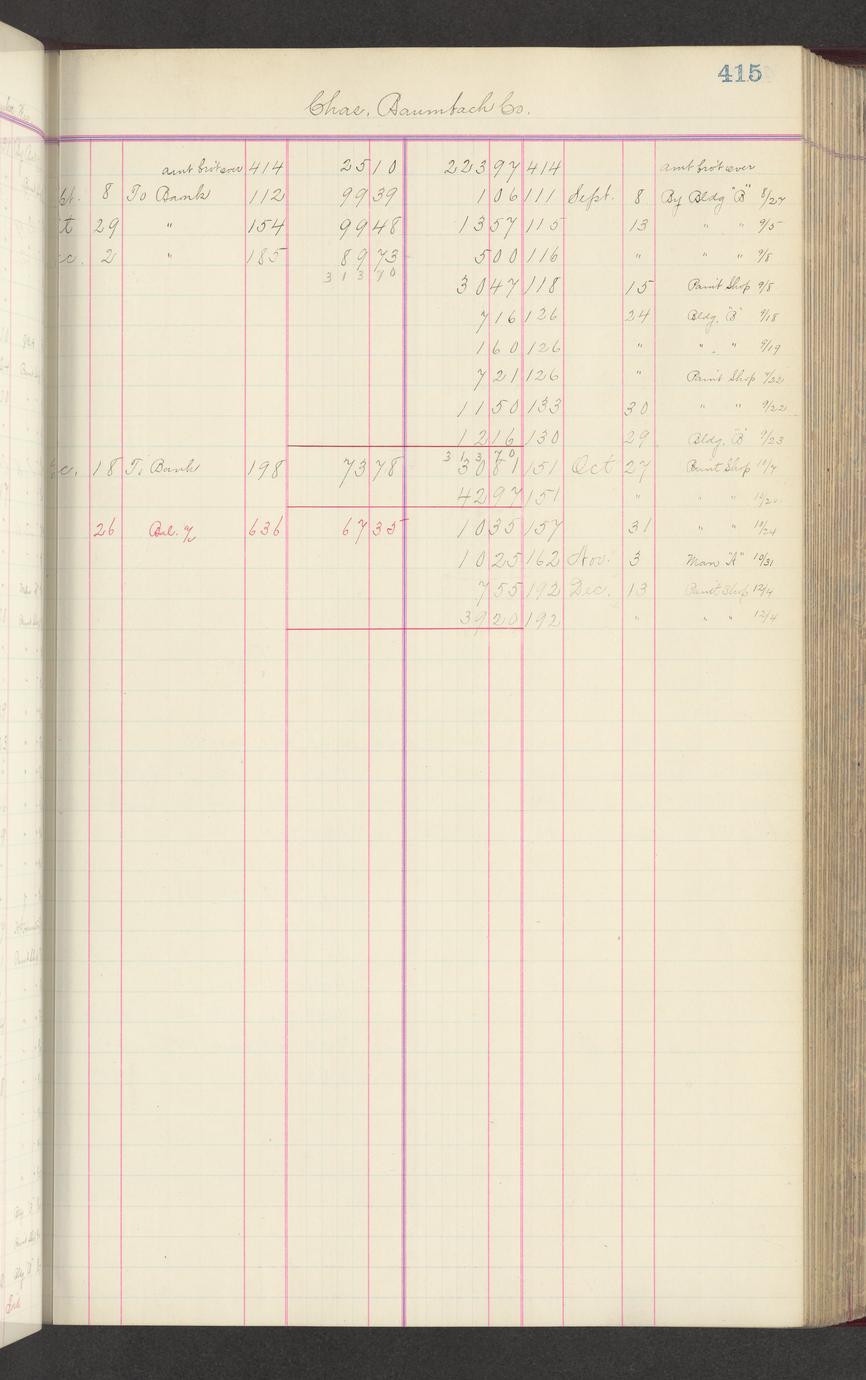 415
Chas. Baumbach Co.
amt bro't over 414 25 10 223 97 414 amt bro't over
8 To Bank 112 99 39 1 06 111 Sept. 8 By Bldg "B" 8/27
29 " 154 99 48 13 57 115 13 " " 9/5
2 " 185 89 73 5 00 116 " " " 9/8
313 70 30 47 118 15 Paint Shop 9/8
7 16 126 24 Bldg. "B" 9/18
1 60 126 " " " 9/19
7 21 126 " Paint Shop 9/22
11 50 133 30 " " 9/22
12 16 130 29 Bldg. "B" 9/23
313 70
18 To Bank 198 73 78 30 81 151 Oct 27 Paint Shop 10/7
42 97 151 " " " 10/20
26 Bal. % 636 67 35 10 35 157 31 " " 10/24
10 25 162 Nov. 3 Man "A" 10/31
7 55 192 Dec. 13 Paint Shop 12/4
39 20 192 " " " 12/4